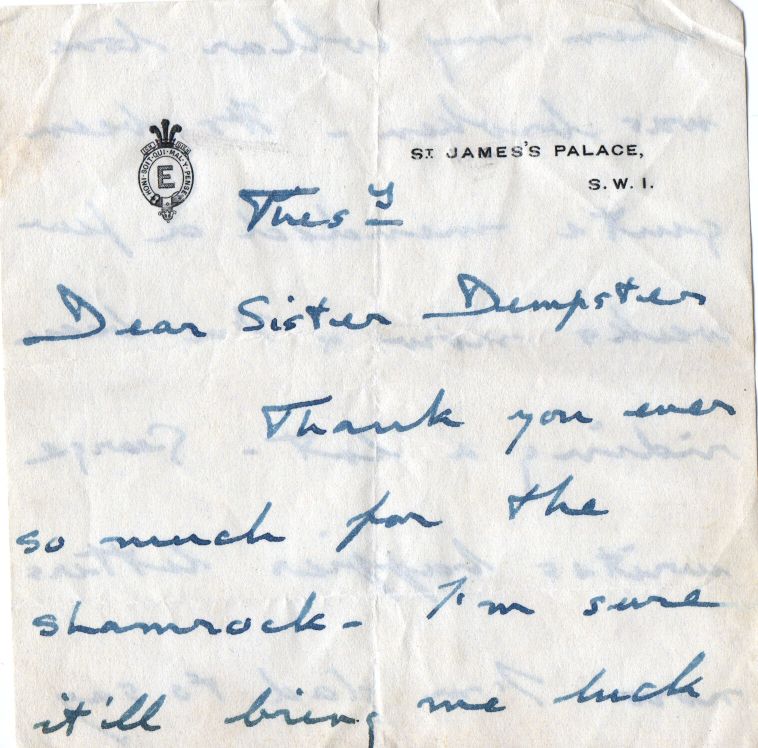 HONI·SOIT·QUI·MAL·Y·PENSE
E
ST. JAMES'S PALACE,
S.W.1.
Thesy
Dear Sister Dempster
Thank you ever
so much for the
shamrock - I'm sure
it'll bring me luck